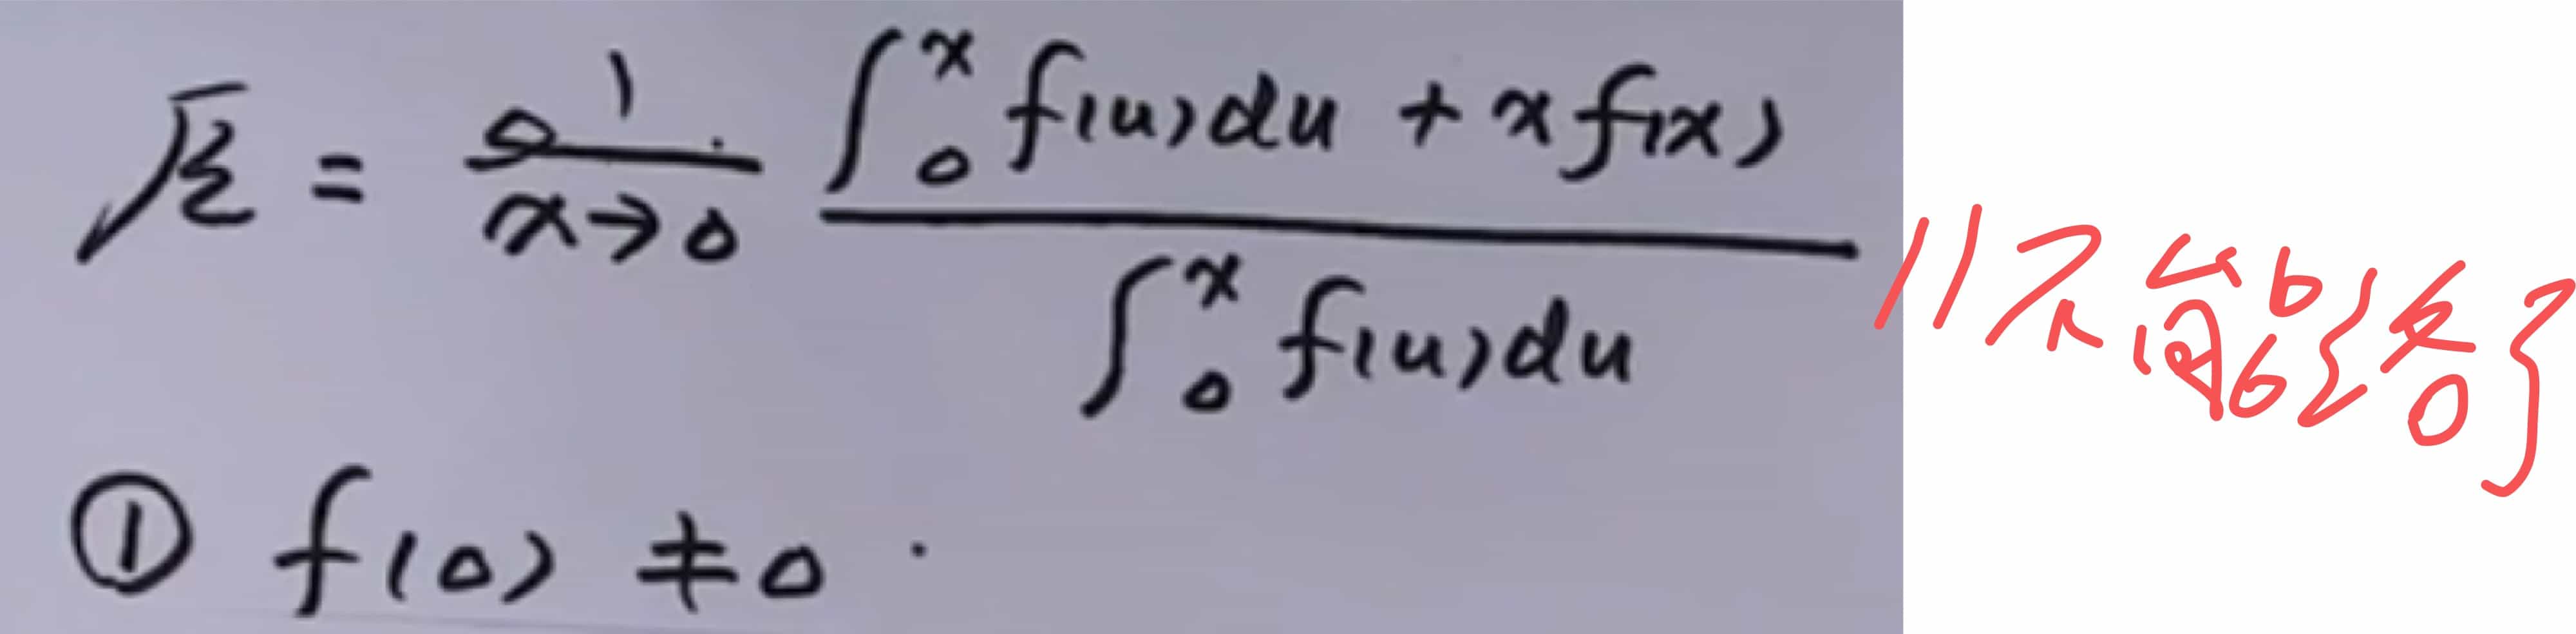 原 = lim x→0 (∫₀ˣ f(u)du + x f(x)) / (∫₀ˣ f(u)du) //不能洛
① f(0) ≠ 0 .